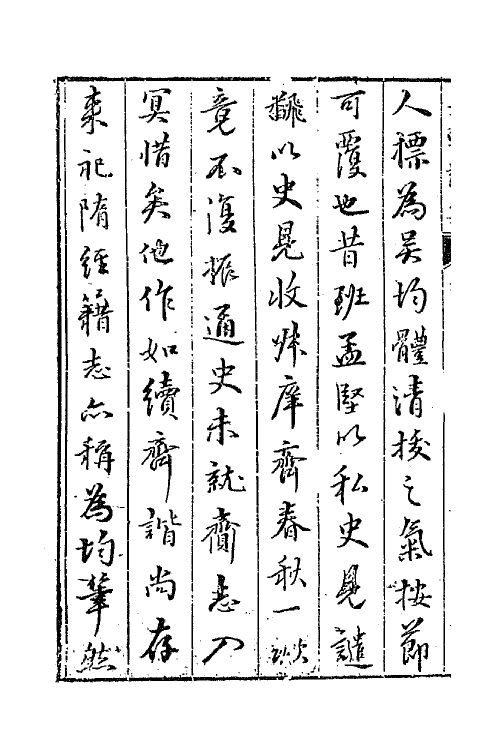 人標為吳均體清拔之氣按節
可覆也昔班孟堅以私史見譴
以史見收叔庠齊春秋一
竟不復振通史未就齎志入
冥惜矣他作如續齊諧尚存
来祀隋經籍志亦稱為均筆然